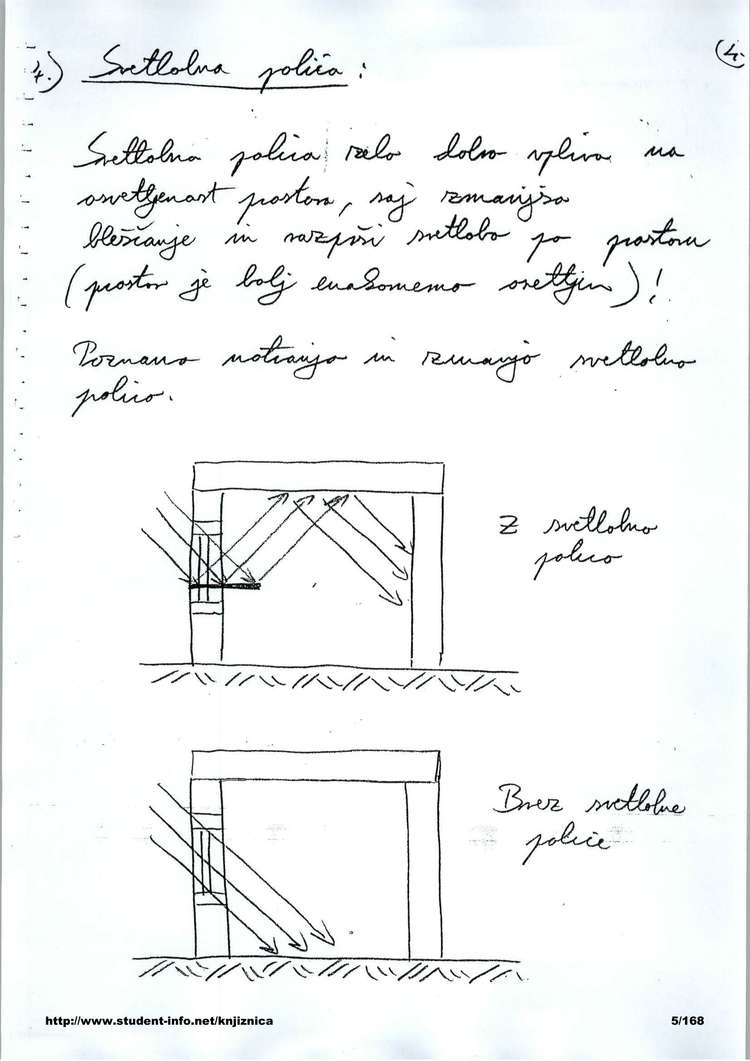 4.) Svetlobna polica:
4.
Svetlobna polica zelo dobro vpliva na
osvetljenost prostora, saj zmanjša
bleščanje in razprši svetlobo po prostoru
(prostor je bolj enakomerno osvetljen)!
Poznamo notranjo in zunanjo svetlobno
polico.
Z svetlobno
polico
Brez svetlobne
police
http://www.student-info.net/knjiznica
5/168